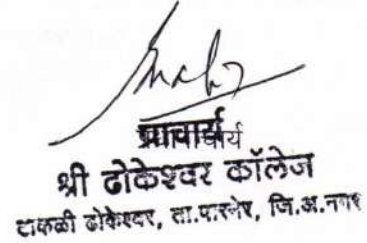 प्राचार्य
श्री ढोकेश्वर कॉलेज
टाकळी ढोकेश्वर, ता.पारनेर, जि.अ.नगर